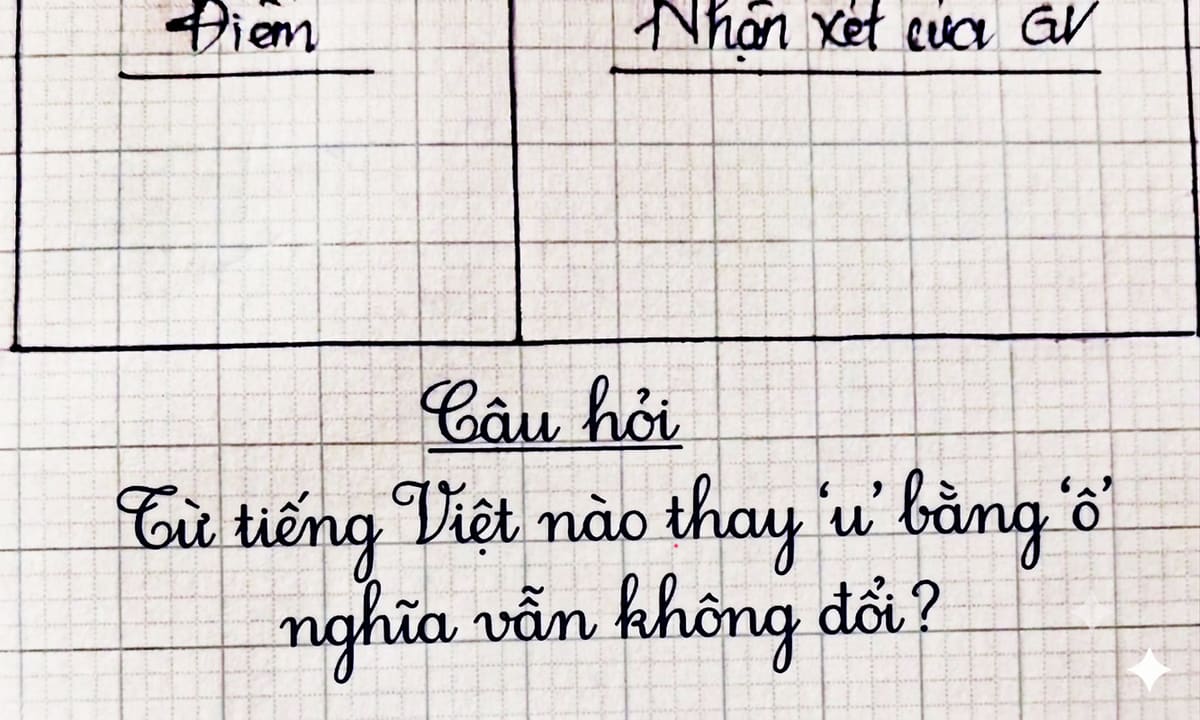 Điểm
Nhận xét của GV
Câu hỏi
Từ tiếng Việt nào thay 'u' bằng 'ô'
nghĩa vẫn không đổi?